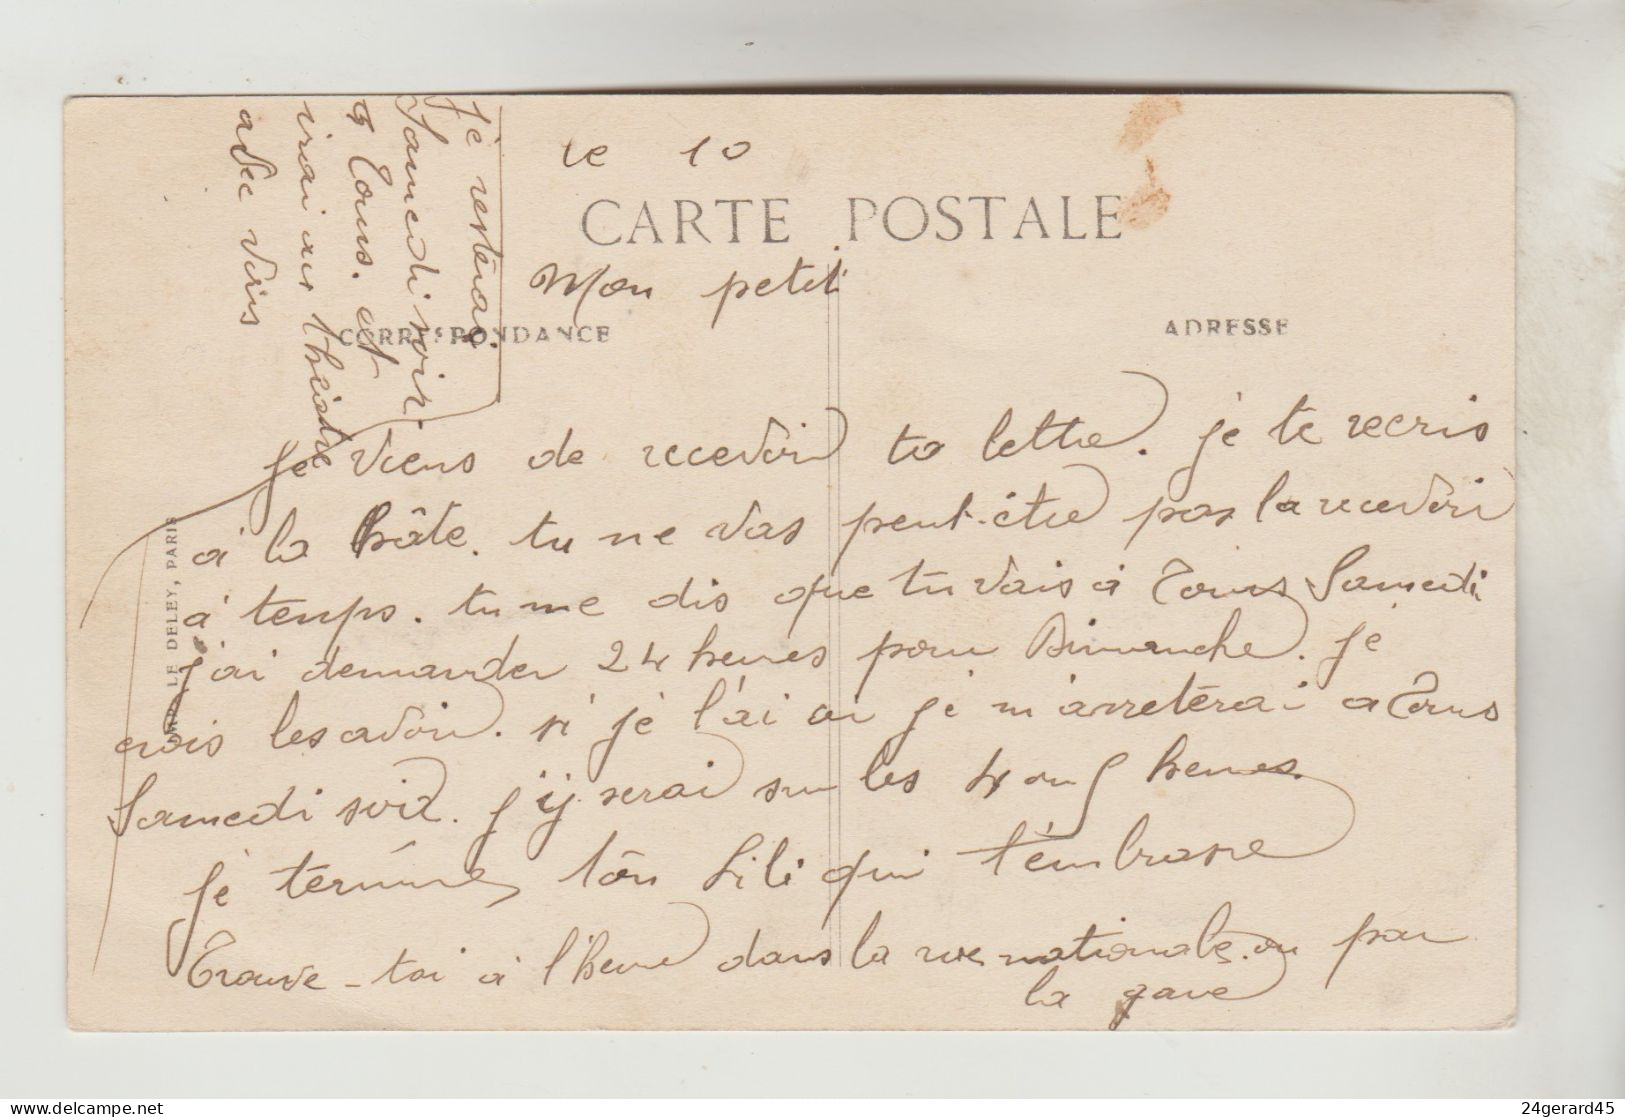 le 10
CARTE POSTALE
Mon petit
CORRESPONDANCE
ADRESSE
Je viens de recevoir ta lettre. je te recris
à la hâte. tu ne vas peut-être pas la recevoir
à temps. tu me dis que tu vais à Tours Samedi
j'ai demander 24 heures pour Dimanche. je
crois les avoir. si je l'ai oui je m'arrêterai a Tours
Samedi soir. j'y serai sur les 4 ou 5 heures.
je termine, ton Lili qui t'embrasse
Trouve-toi à l'heure dans la rue nationale. ou par
la gare
je resterai
Samedi soir
à Tours. et
irai au théâtre
avec vins
LE DELEY, PARIS
24gerard45